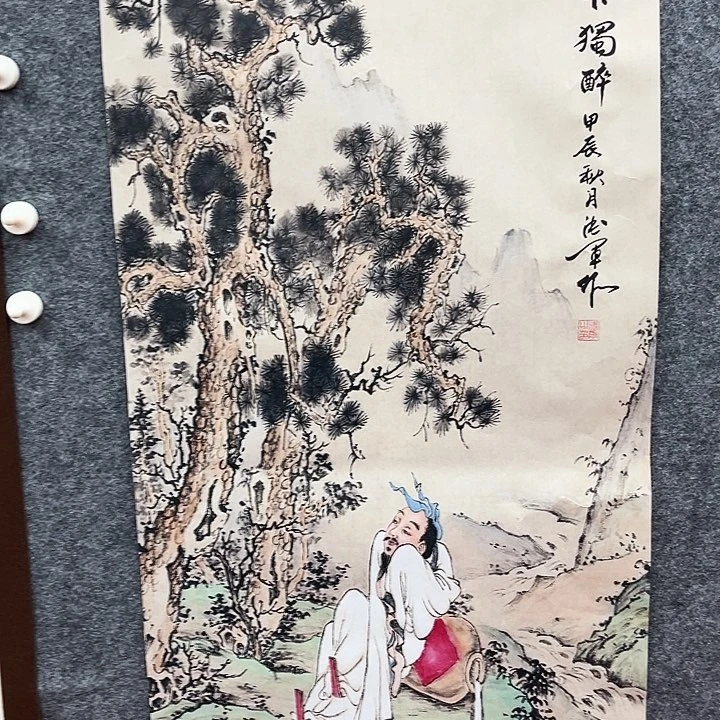 獨醉甲辰秋月海軍作